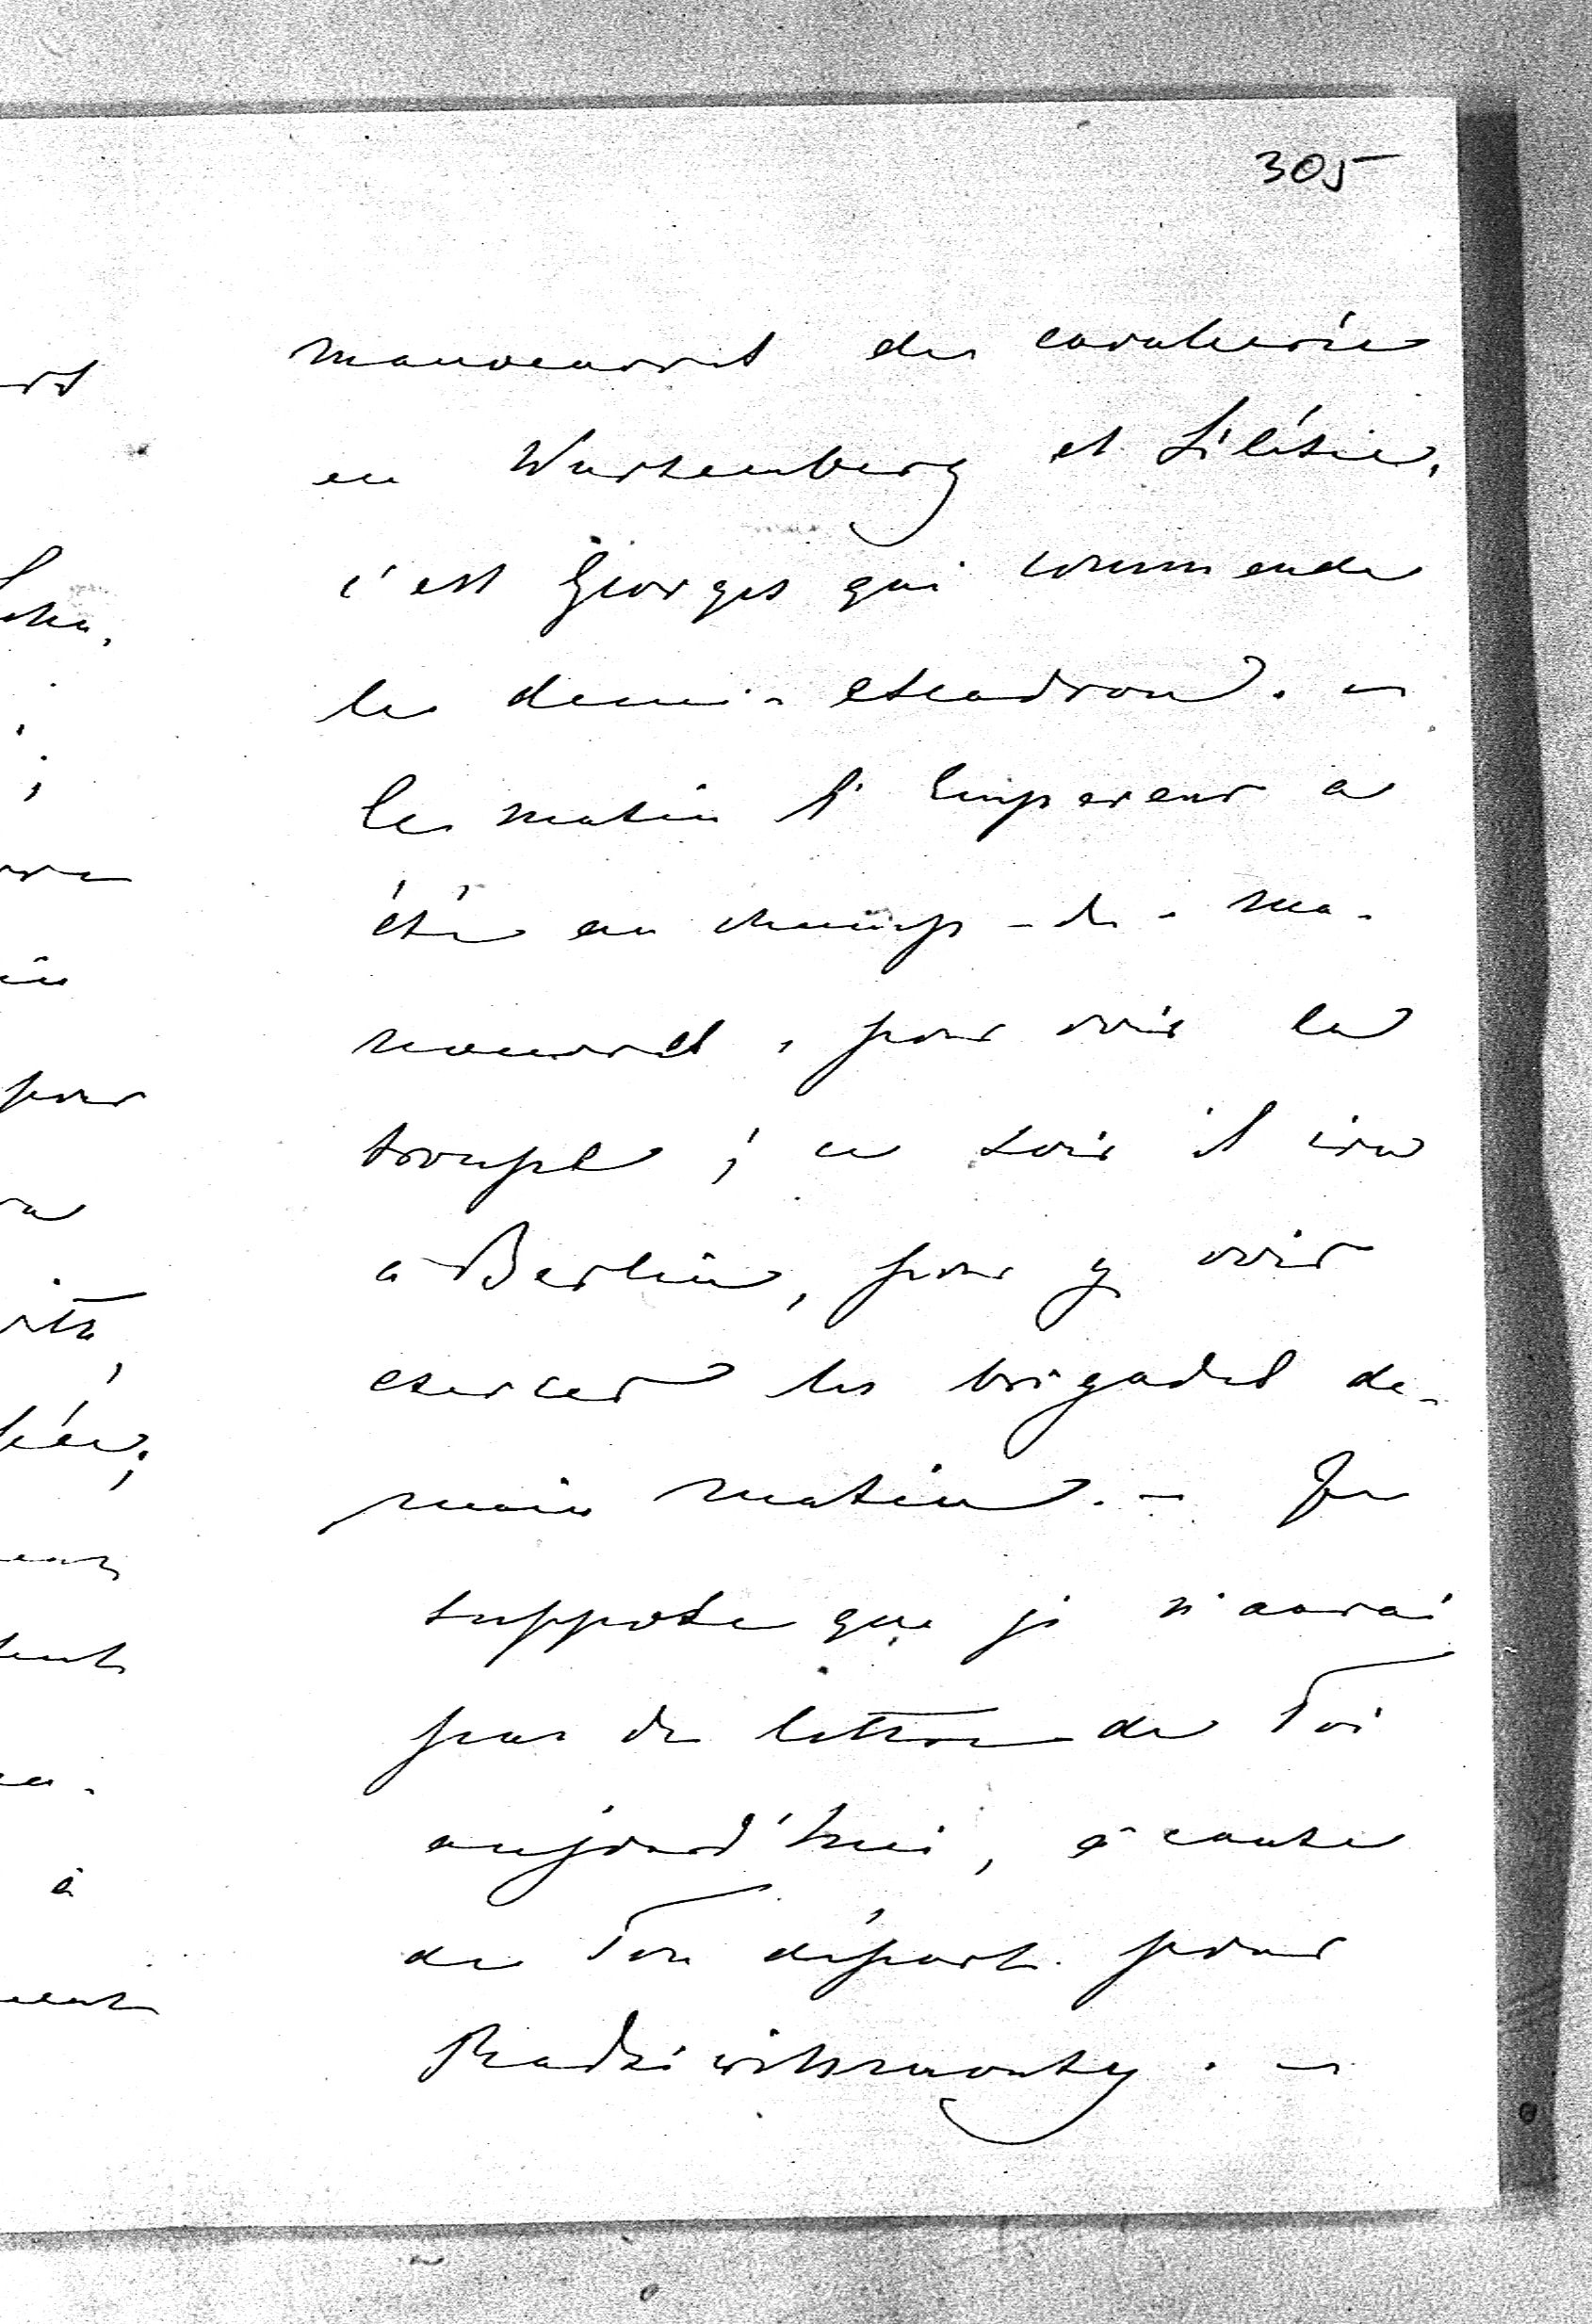 305
manoeuvres de cavalerie
en Wurtemberg et Silésie,
c'est Georges qui commende
le demi-escadron. –
Ce matin l'Empereur a
été au champ-de-ma-
noeuvres, pour voir la
troupe ; ce soir il ira
à Berlin, pour y voir
exercer les brigades de-
main matin. – Je
suppose que je n'aurai
pas de lettre de Toi
aujourd'hui, à cause
de Ton départ pour
Radziwillmonty. –
pour
à